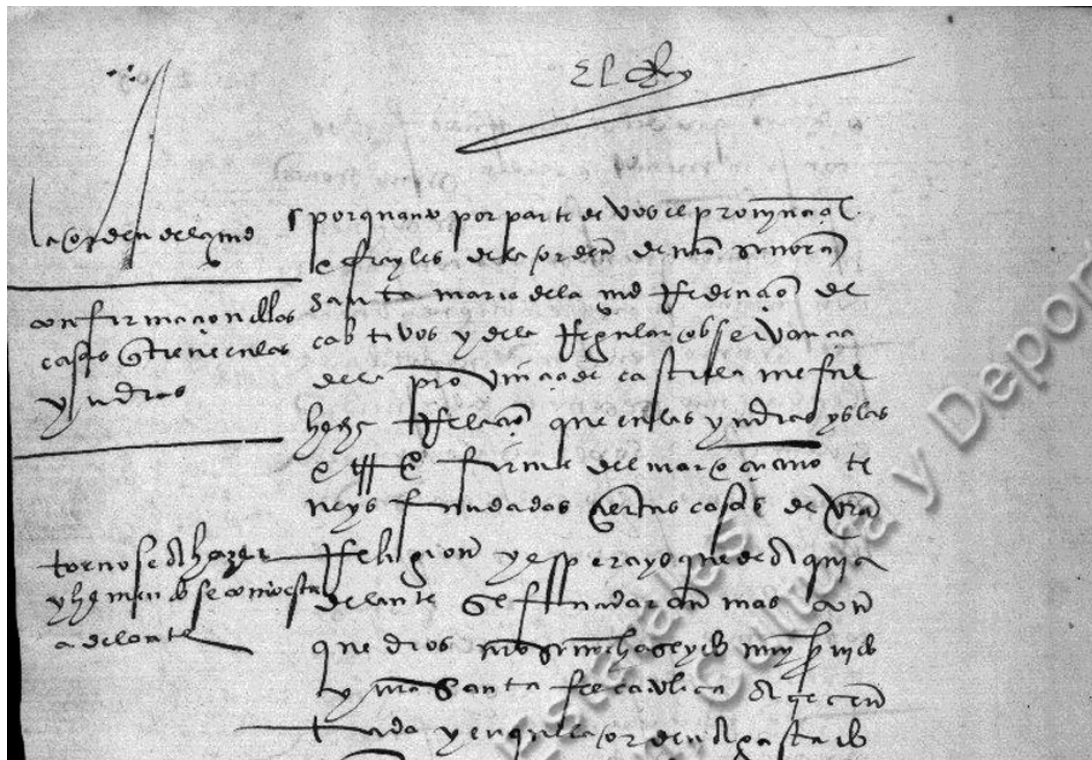 El Rey
la orden de la md
confirmacion de las
casas q tiene en las
yndias
torno se a hazer
y he mendose como esta
adelante
porquanto por parte de vos el provinçial
e frayles de la orden de nra señora
santa maria de la md Redençion de
cabtivos y de la Regular observançia
de la provinçia de castilla me fue
hecha Relaçion que en las yndias yslas
e trra firme del mar oçeano te
neys fundadas çiertas casas de vra
Religion y esperays que de aqui a
delante se fundaran mas con
que dios nro señor ha seydo muy seruido
y nra santa fee catolica acreçen
tada y en que la orden a gastado
Estatales
Cultura y Depor